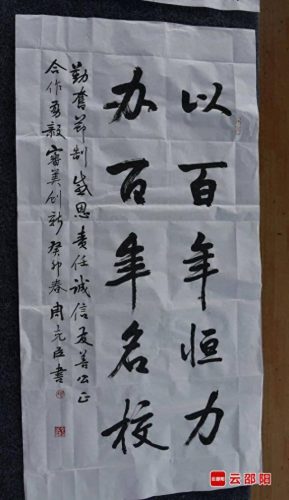 以百年恒力
办百年名校
勤奋节制感恩责任诚信友善公正
合作勇毅审美创新癸卯春周克臣书
云邵阳
云邵阳